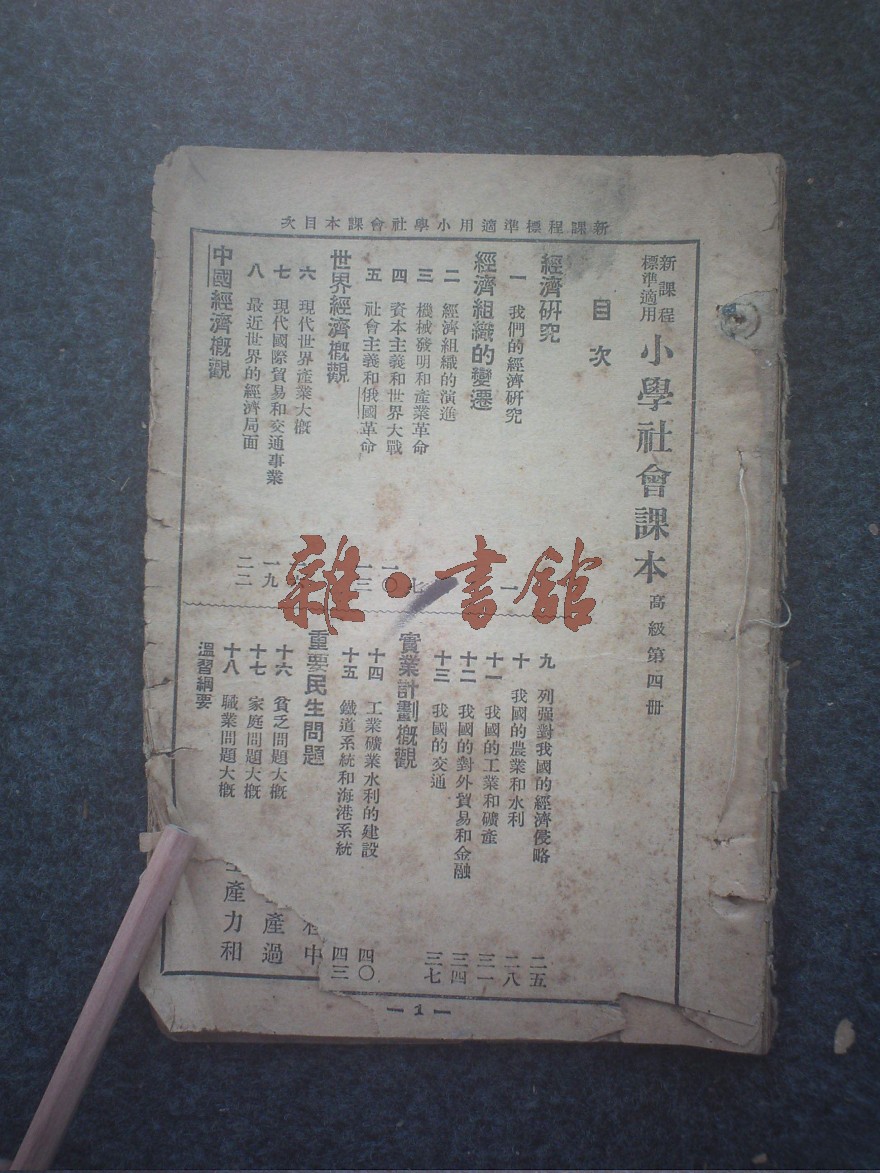 新課程標準適用小學社會課本目次
新課程
標準適用
小學社會課本
高級第四冊
目次
經濟研究
一 我們的經濟研究 一
經濟組織的變遷
二 經濟組織的演進
三 機械發明和產業革命 七
四 資本主義和世界大戰 一〇
五 社會主義和俄國革命 一三
世界經濟概觀
六 現代世界產業大概
七 現代國際貿易和交通事業 一九
八 最近世界的經濟局面 二二
中國經濟概觀
九 列强對我國的經濟侵略 二五
十 我國的農業和水利 二八
十一 我國的工業和礦產 三一
十二 我國的對外貿易和金融 三四
十三 我國的交通 三七
實業計劃概觀
十四 工業礦業水利的建設 四〇
十五 鐵道系統和海港系統 四三
重要民生問題
十六 貧乏問題大概
十七 家庭問題大概
十八 職業問題大概
溫習綱要
中
產過
產力和
— 1 —
雜·書館